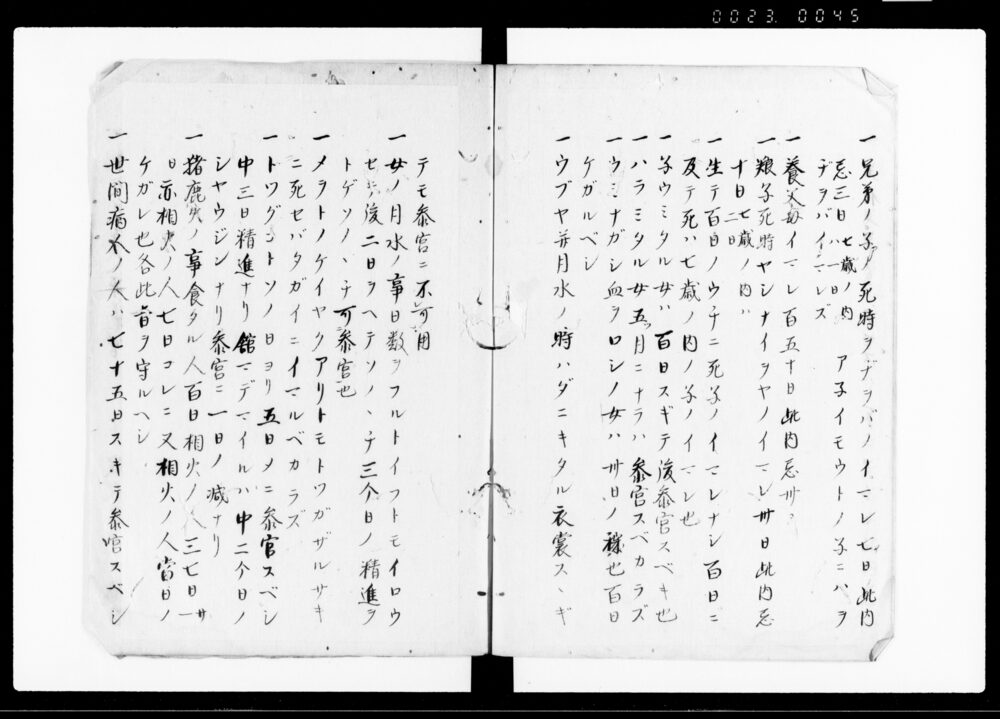 0023.0045
一兄弟ノ子ノ死時ヲヂヲバノイマレ七日此内
忌三日七歳ノ内ハ一日 ア子イモウトノ子ニハヲ
ヂヲバイマレズ
一養父母イマレ百五十日此内忌卅日
一粮子死時ヤシナイヲヤノイマレ卅日此内忌
十日七歳ノ内ハ二日
一生テ百日ノウチニ死子ノイマレナシ百日ニ
及テ死ハ七歳ノ内ノ子ノイマレ也
一子ウミタル女ハ百日スギテ後参宮スベキ也
一ハラミタル女五月ニナラハ参宮スベカラズ
一ウミナガシ血ヲロシノ女ハ卅日ノ穢也百日
ケガルベシ
一ウブヤ并月水ノ時ハダニキタル衣裳スヽギ
テモ参宮ニ不可用
一女ノ月水ノ事日数ヲフルトイフトモイロウ
セテ後二日ヲヘテソノヽチ三个日ノ精進ヲ
トゲソノヽチ可参宮也
一メヲトノケイヤクアリトモトツガザルサキ
ニ死セバタガイニイマルベカラズ
一トツグコトソノ日ヨリ五日メニ参宮スベシ
中三日精進ナリ館マデマイルハ中二个日ノ
シヤウジンナリ参宮ニ一日ノ減ナリ
一猪鹿火ノ事食タル人百日相火ノ人三七日廿一
日亦相火ノ人七日コレニ又相火ノ人當日ノ
ケガレ也各此旨ヲ守ルヘシ
一世間病人ノ人ハ七十五日スキテ参宮スベシ